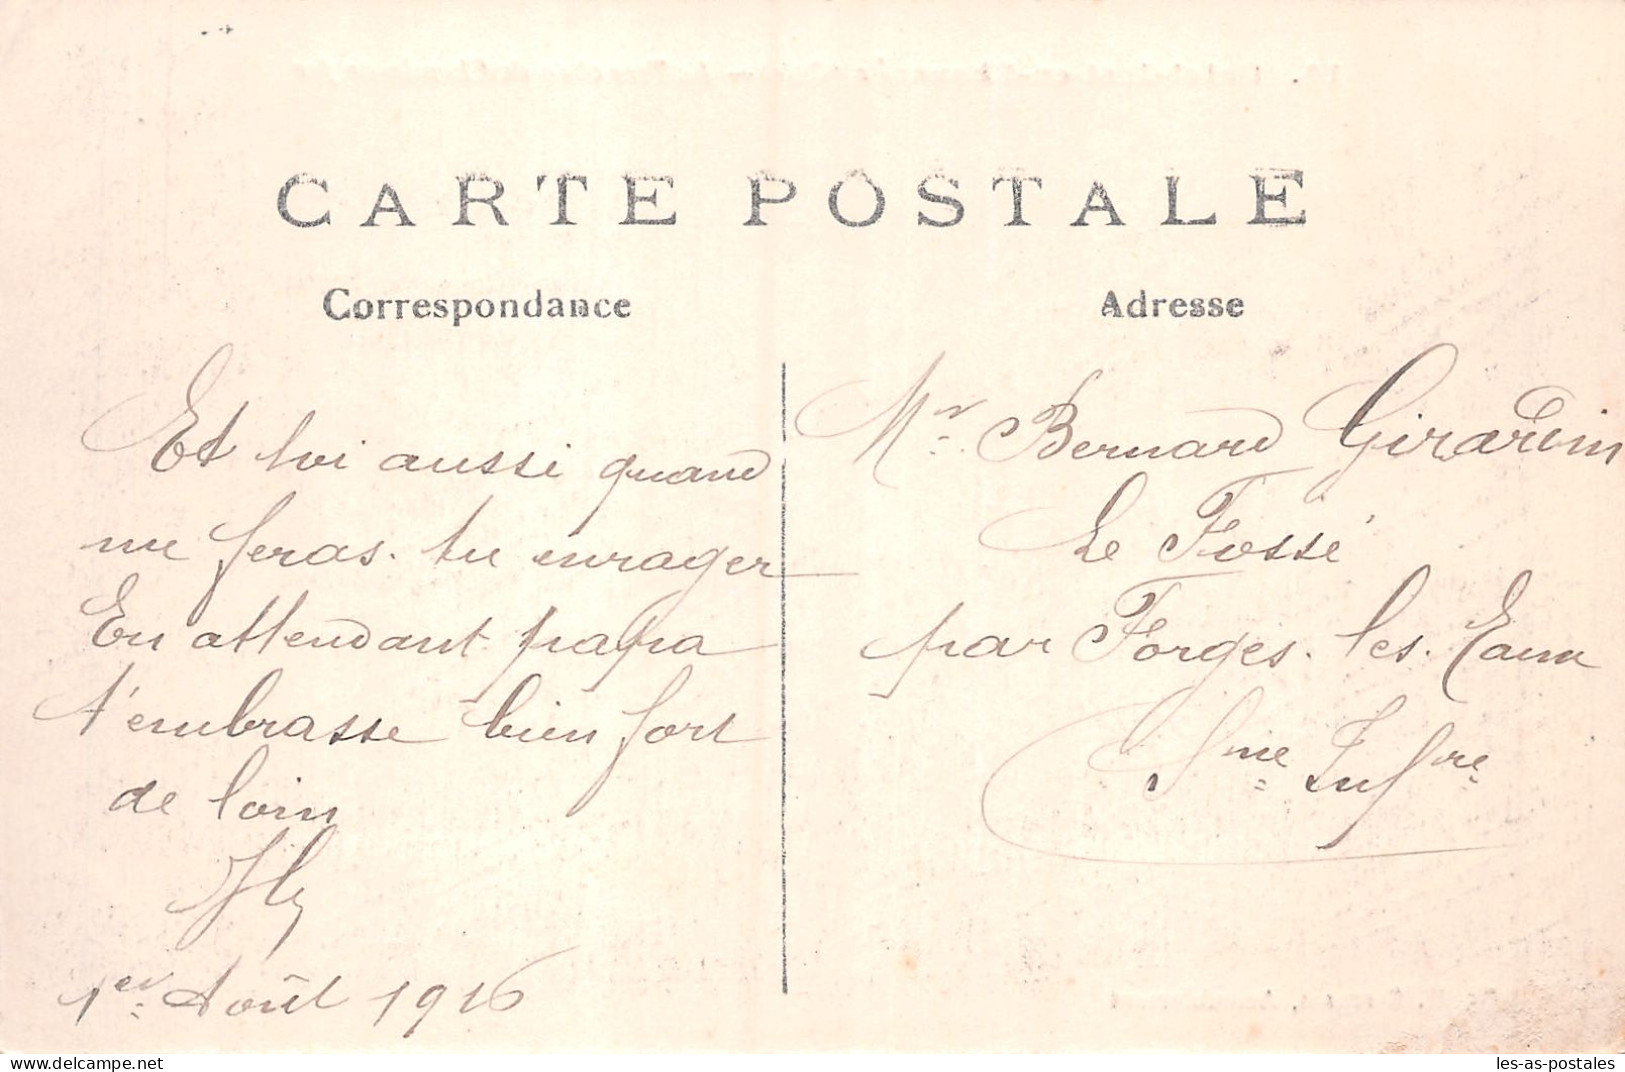 CARTE POSTALE
Correspondance
Et toi aussi quand
me feras-tu enrager
En attendant papa
t'embrasse bien fort
de loin
1er Août 1916
Adresse
Mr Bernard Girardin
Le Fossé
par Forges-les-Eaux
Sme Infre
les-as-postales
delcampe.net